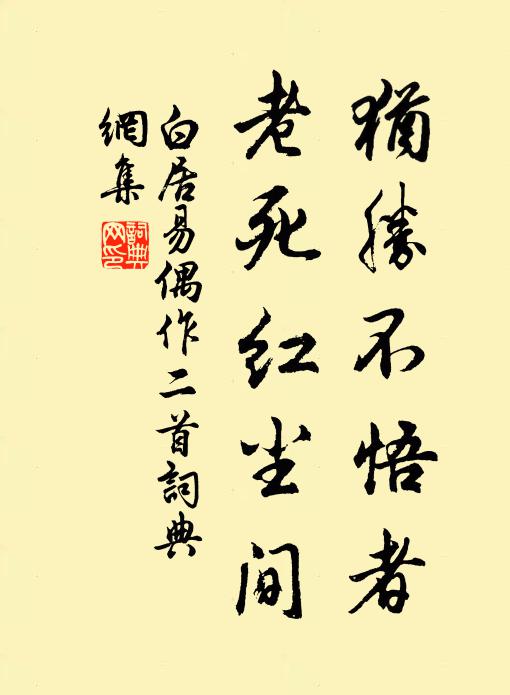 猶勝不悟者
老死红尘间
白居易偶作二首詞典
網集
詞典
网印